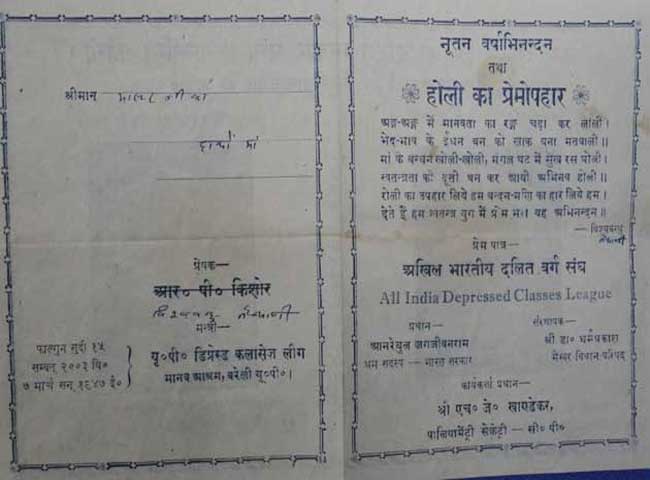 श्रीमान
हाथों में
प्रेषक—
आर० पी० किशोर
मन्त्री—
यू० पी० डिप्रेस्ड क्लासेज लीग
मानव आश्रम, बरेली यू० पी० ।
फाल्गुन सुदी १५
सम्वत् २००३ वि०
७ मार्च सन् १९४७ ई०
नूतन वर्षाभिनन्दन
तथा
होली का प्रेमोपहार
अङ्ग-अङ्ग में मानवता का रङ्ग चढ़ा कर लाली ।
भेद-भाव के ईंधन बन को खाक बना मतवाली ॥
मां के बन्धन खोली-खोली, मंगल घट में सुख रस घोली ।
स्वतन्त्रता की दूती बन कर आयी अभिनव होली ॥
रोली का उपहार लिये हम चन्दन-मणि का हार लिये हम ।
देते हैं हम स्वतन्त्र युग में प्रेम भरा यह अभिनन्दन ॥
— विश्वबन्धु
प्रेम पात्र—
अखिल भारतीय दलित वर्ग संघ
All India Depressed Classes League
प्रधान—
आनरेबुल जगजीवनराम
श्रम सदस्य — भारत सरकार
संस्थापक—
श्री डा० धर्मप्रकाश
मेम्बर विधान परिषद्
कार्यकर्ता प्रधान—
श्री एच० जे० खाण्डेकर,
पार्लियामेंट्री सेक्रेट्री — सी० पी०